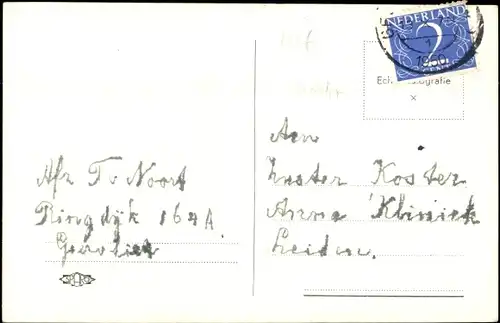 NEDERLAND
2
CENT
1950
Echte Fotografie
x
Aan
Zuster Koster
Anna Kliniek
Leiden.
Afz T. v Noort
Ringdijk 164A